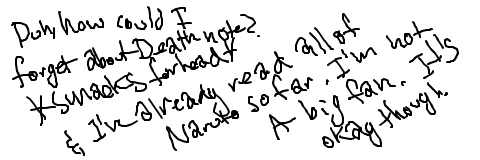 Duh, how could I
forget about Death note?
*smacks forhead*
& I've already read all of
Naruto so far. I'm not
A big fan. It's
okay though.